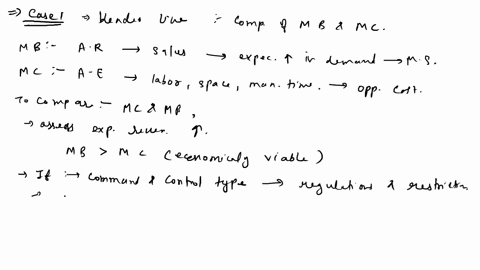 ⇒ Case 1 → Vendor View :- Comp of MB & MC.
MB :- A.R → Sales → expec. ↑ in demand → M.S.
MC :- A-E → labor, space, man. time. → opp. cost.
To compare :- MC & MB,
→ assess exp. reven ↑.
MB > MC (economically viable)
→ If :→ Command & Control type → regulations & restrictn